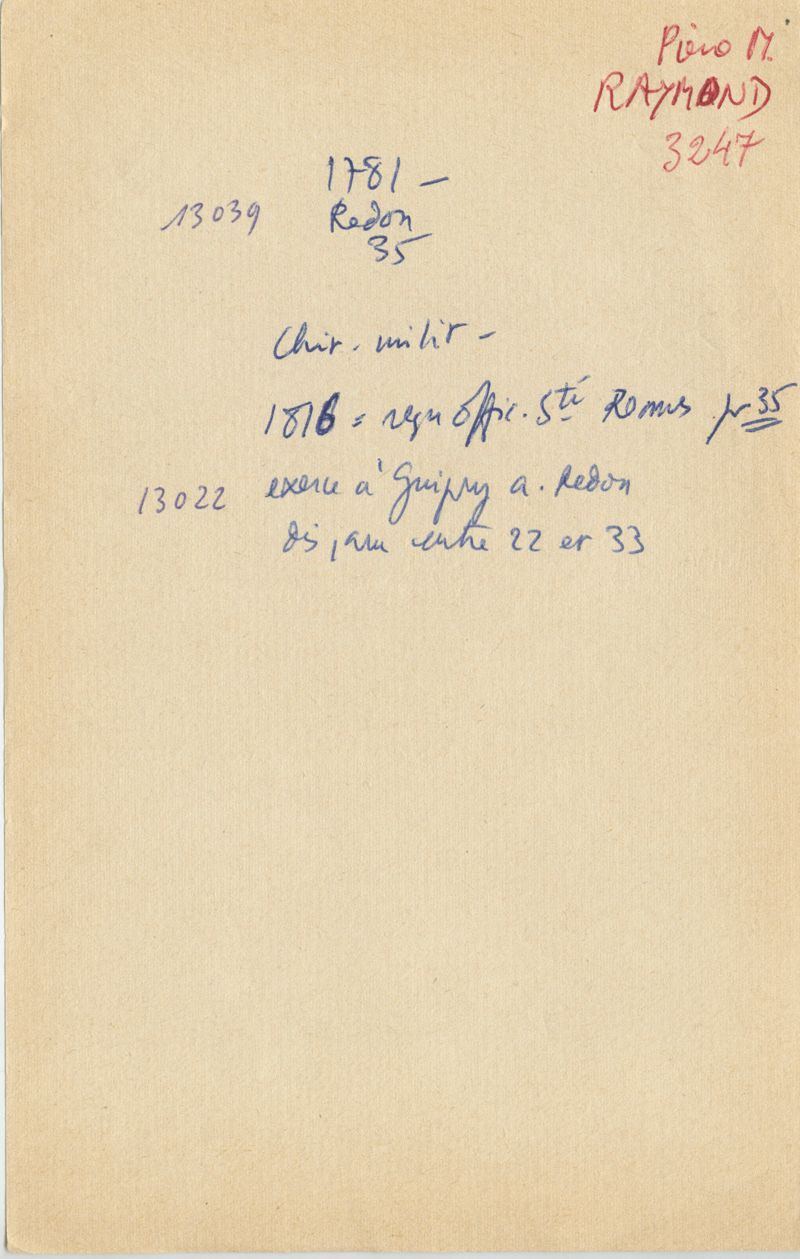 Pierre M.
RAYMOND
3247
1781 –
13039 Redon
35
Chir. milit –
1816 = reçu offic. Sté Rennes pr 35
13022 exerce à Guipry a. Redon
disparu entre 22 et 33